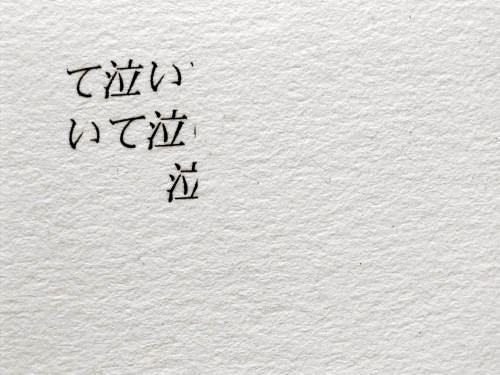 て泣い
いて泣
泣